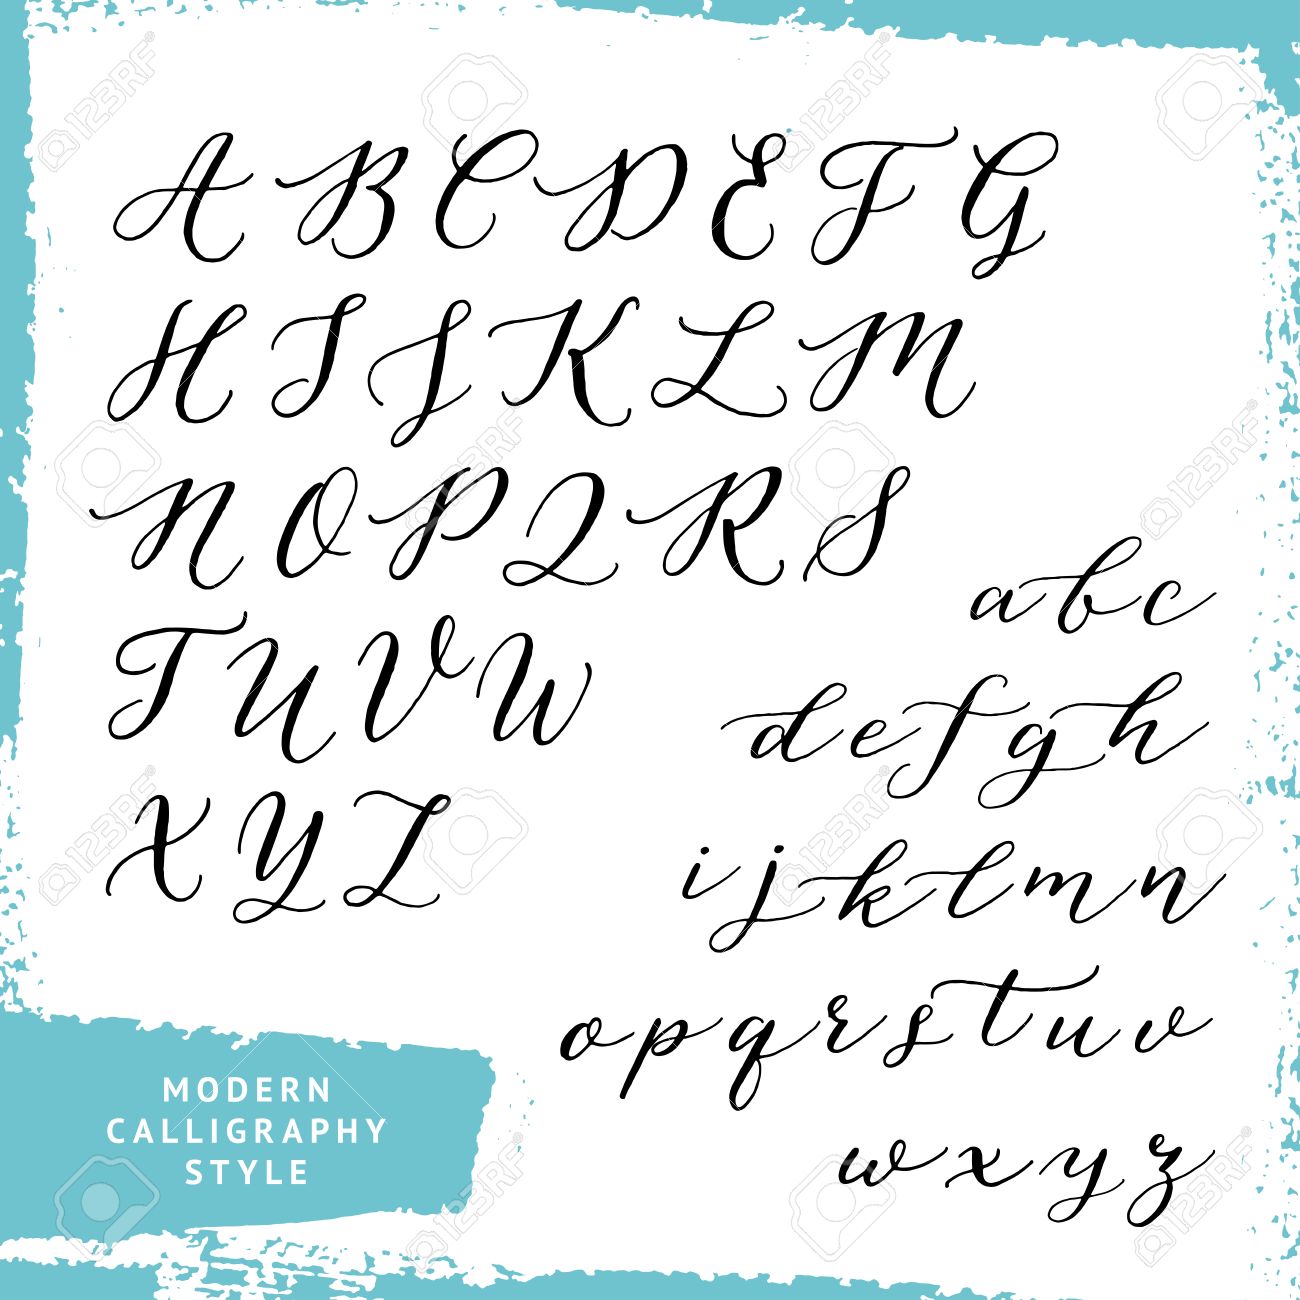 A B C D E F G
H I J K L M
N O P Q R S
T U V W
X Y Z
a b c
d e f g h
i j k l m n
o p q r s t u v
w x y z
MODERN
CALLIGRAPHY
STYLE
123RF